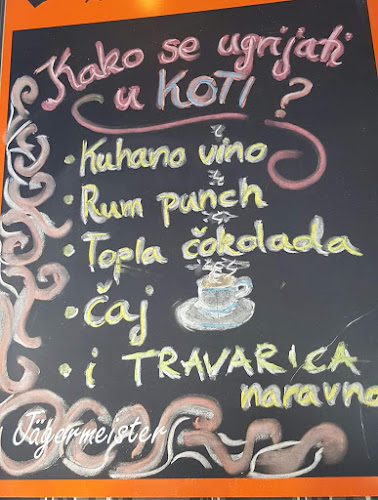 Kako se ugrijati
u KOTI ?
• Kuhano vino
• Rum punch
• Topla čokolada
• Čaj
• i TRAVARICA
naravno
Jägermeister